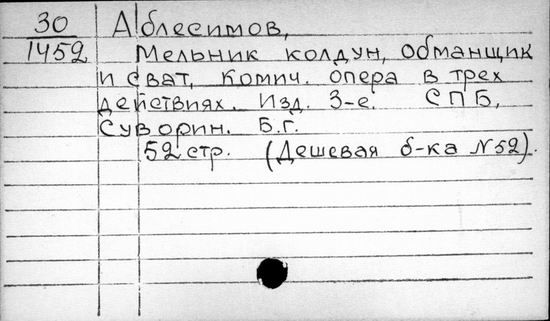 30 Аблесимов,
1452 Мельник колдун, обманщик
и сват, комич. опера в трех
действиях. Изд. 3-е. СПБ,
Суворин. Б.г.
52 стр. (Дешевая б-ка №52).